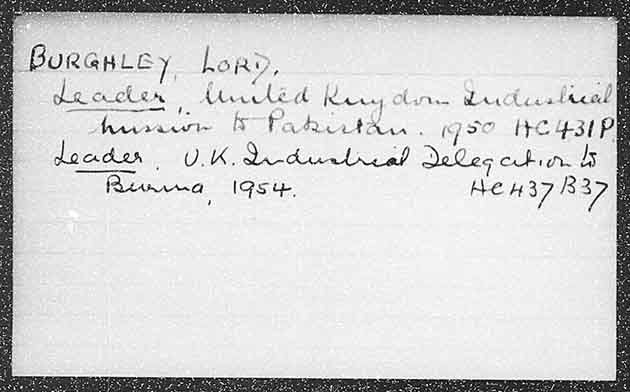 BURGHLEY, LORD.
Leader, United Kingdom Industrial
Mission to Pakistan. 1950 HC431P
Leader. U.K. Industrial Delegation to
Burma, 1954. HC437B37